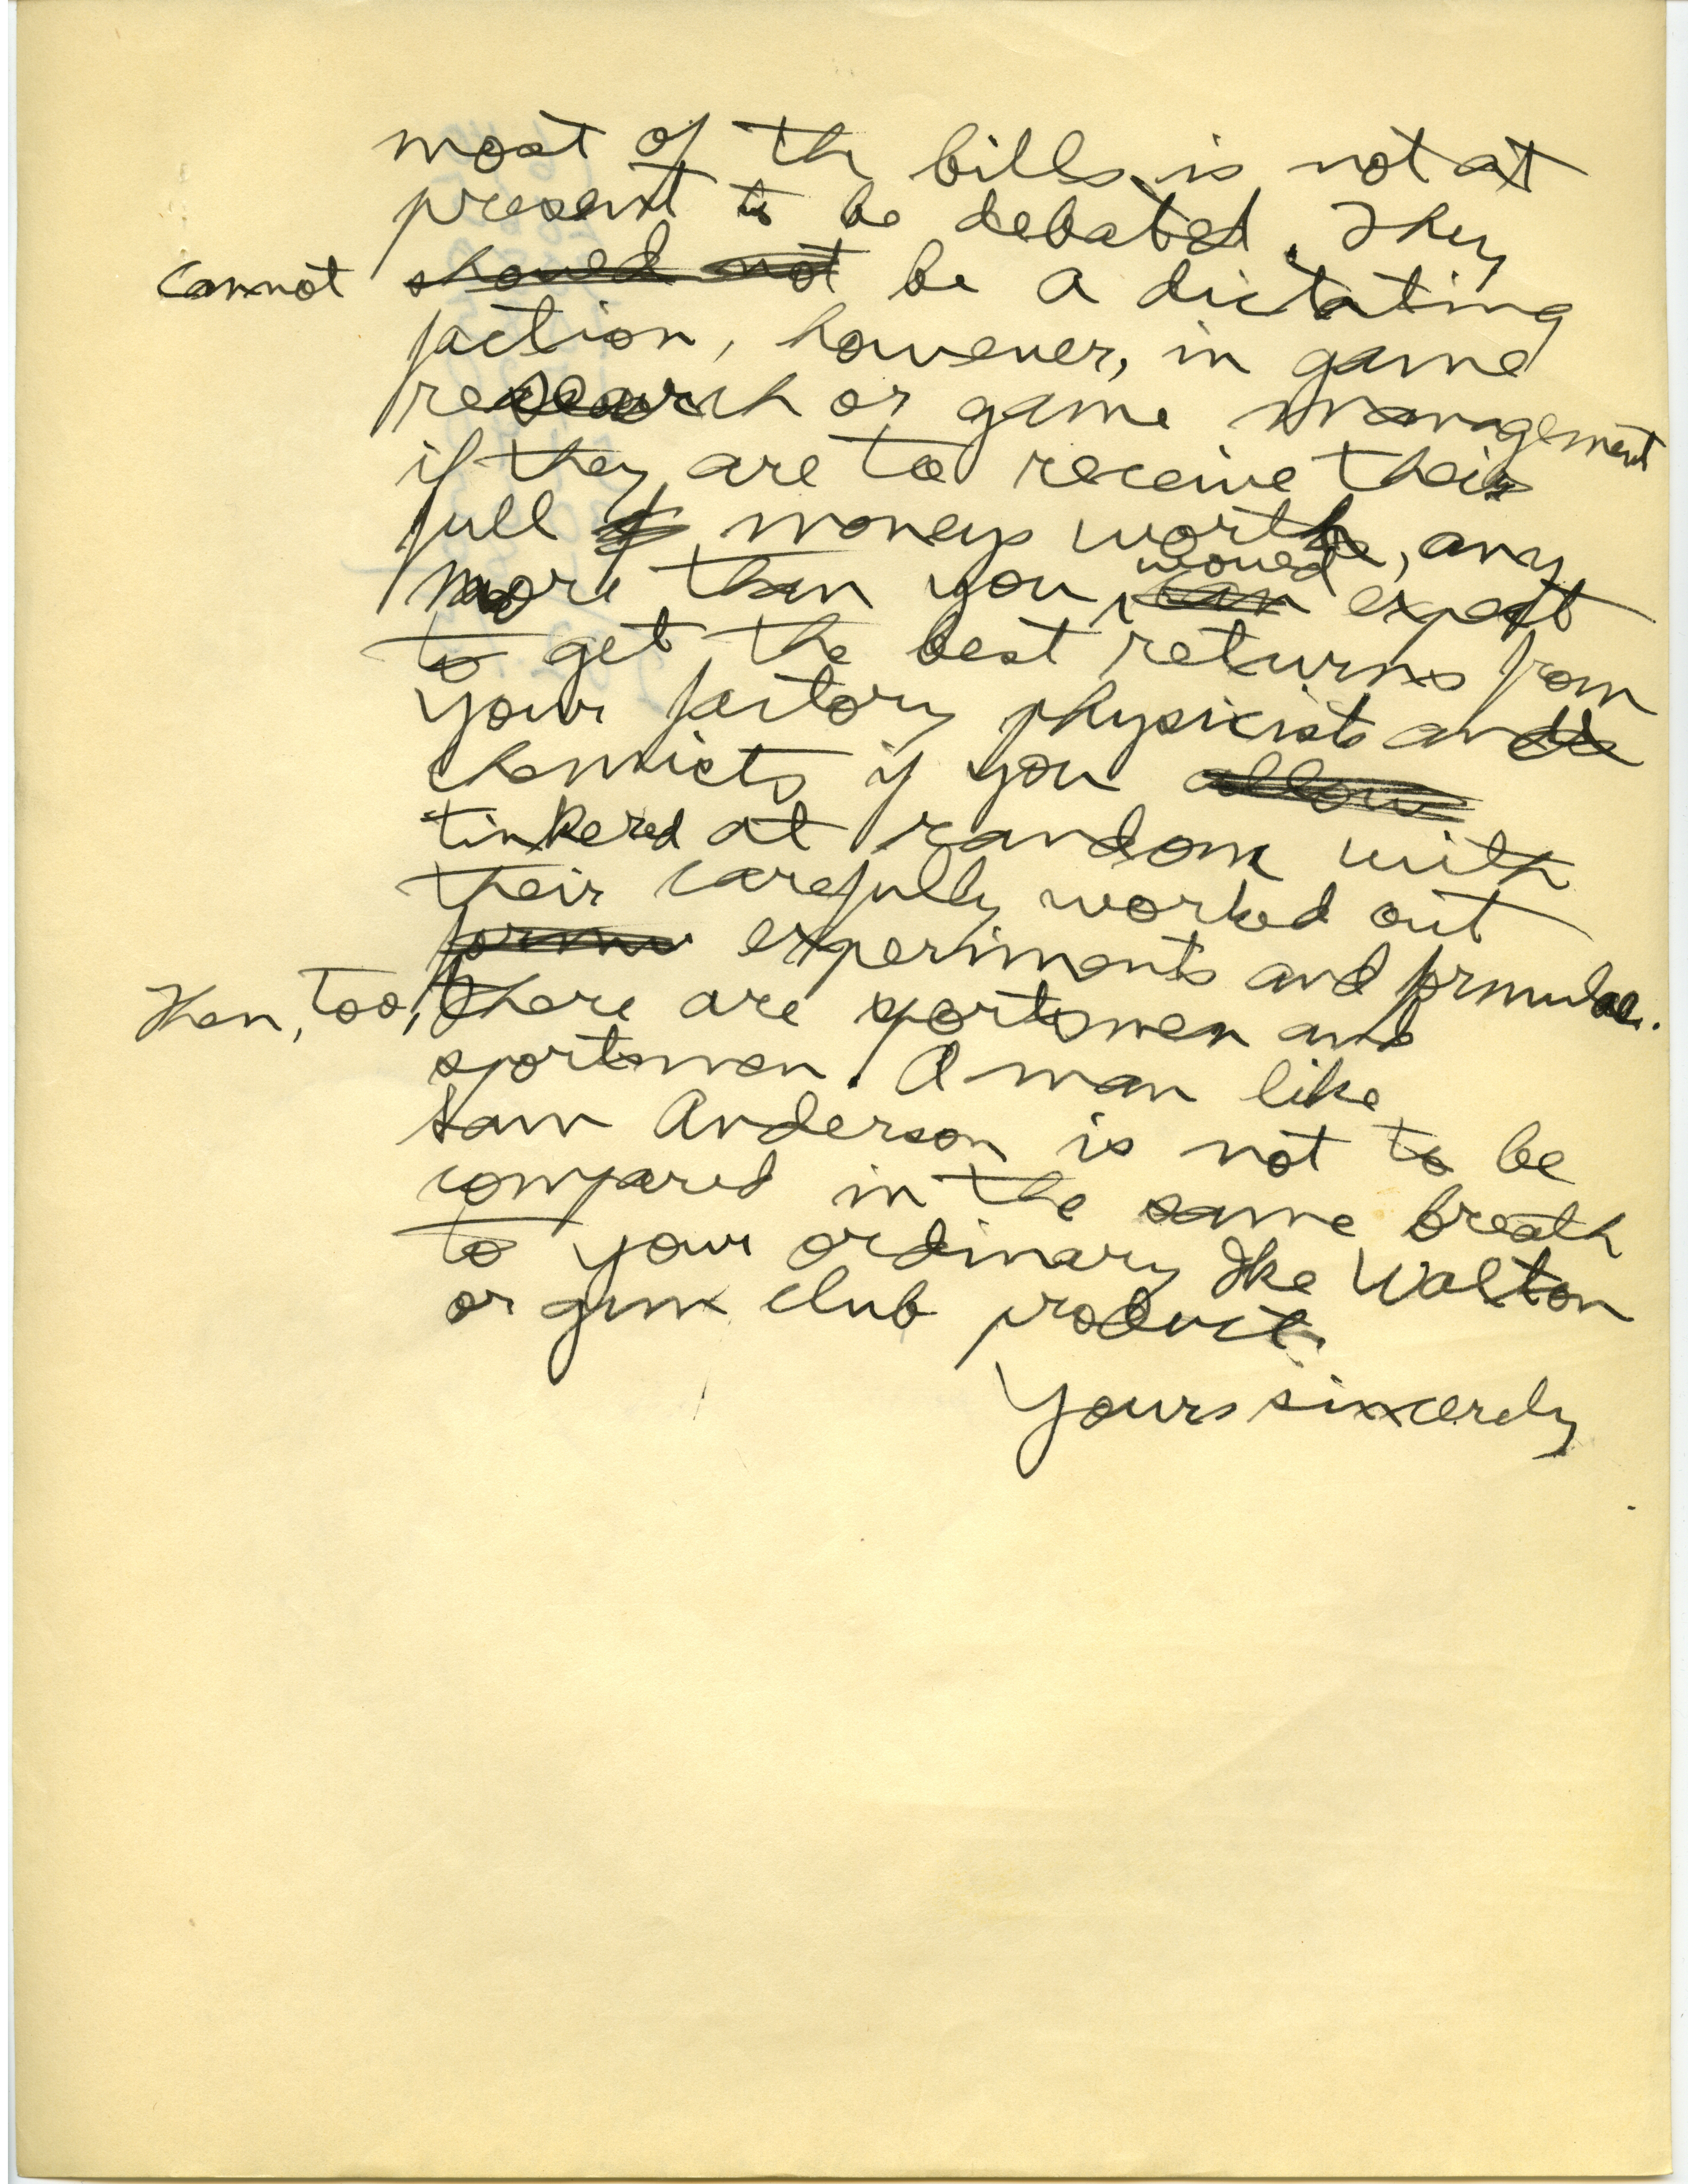 most of the bills, is not at
present to be debated. They
cannot should not be a dictating
faction, however, in game
research or game management
if they are to receive their
full moneys worth, any
more than you would can expect
to get the best returns from
your factory physicists and
chemists if you allow
tinkered at random with
their carefully worked out
formu experiments and formulae.
Then, too, there are sportsmen and
sportsmen. A man like
Sam Anderson is not to be
compared in the same breath
to your ordinary Ike Walton
or gun club product.
Yours sincerely